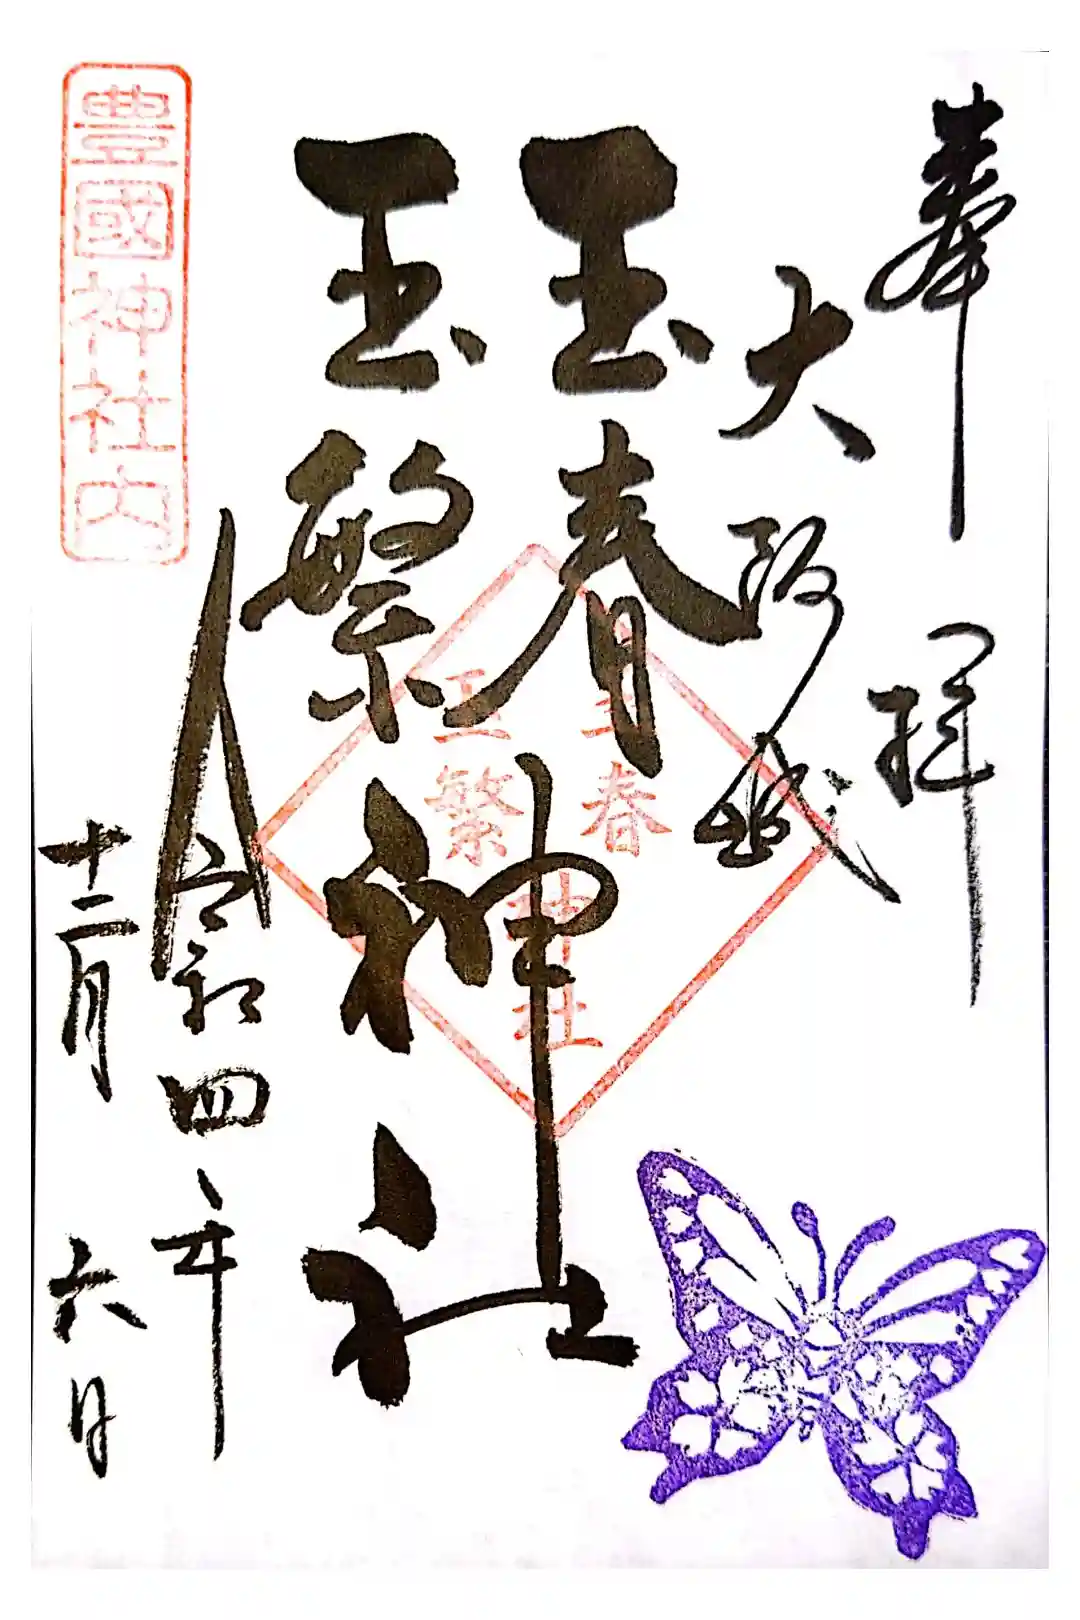 奉拝
大阪城
玉春
玉繁
神社
令和四年
十二月六日
豊國神社内
玉春
玉繁
神社